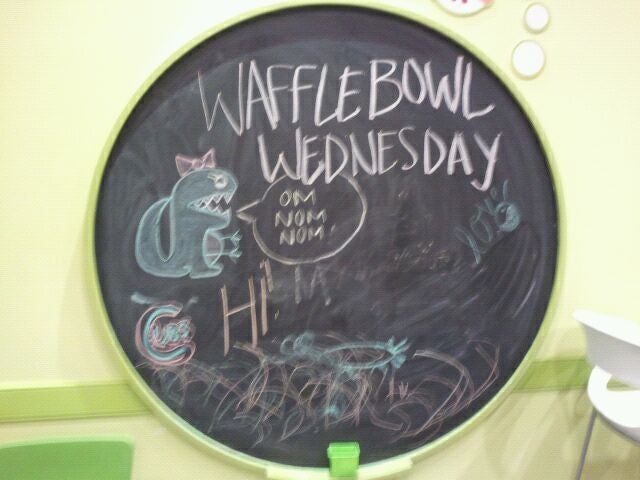 WAFFLE BOWL
WEDNESDAY
OM
NOM
NOM
Hi!
CUBS